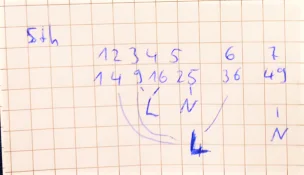 5th
1 2 3 4 5 6 7
1 4 9 16 25 36 49
L N
L
N